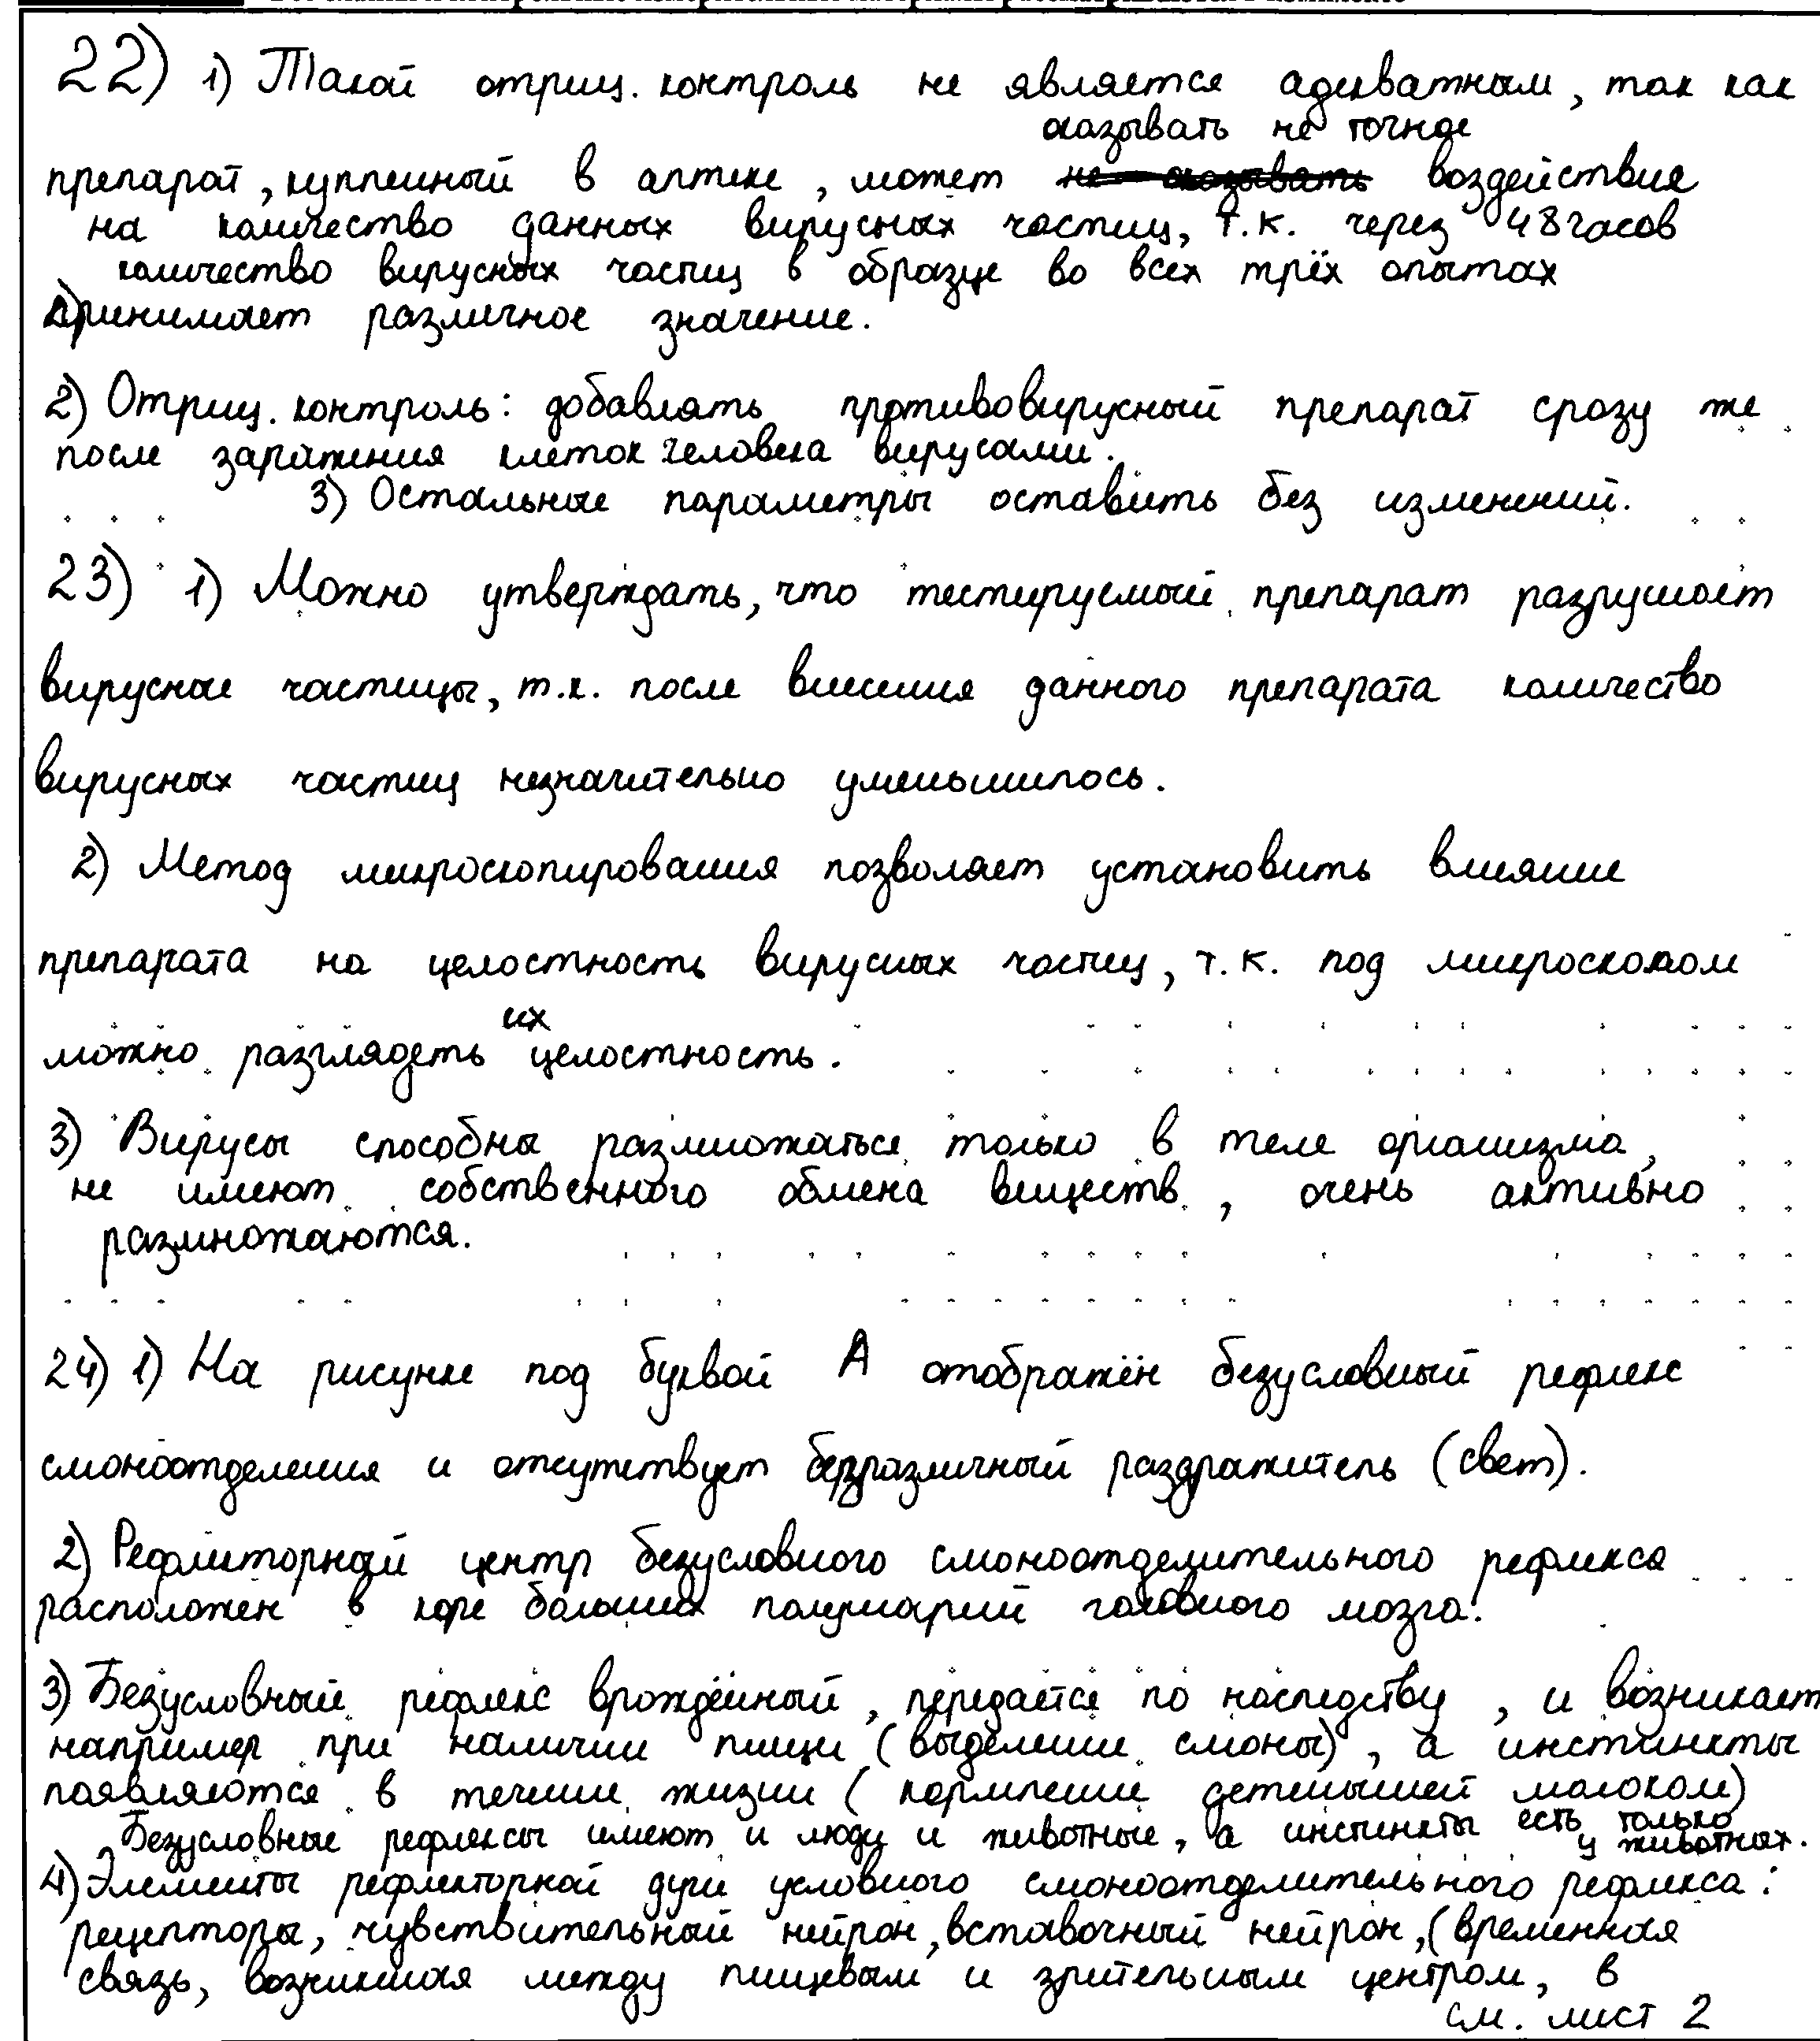 22) 1) Такой отриц. контроль не является адекватным, так как
оказывать не точное
препарат, купленный в аптеке, может воздействие
на количество данных вирусных частиц, т.к. через 48 часов
количество вирусных частиц в образце во всех трёх опытах
принимает различное значение.
2) Отриц. контроль: добавлять противовирусный препарат сразу же
после заражения клеток человека вирусами.
3) Остальные параметры оставить без изменений.
23) 1) Можно утверждать, что тестируемый препарат разрушает
вирусные частицы, т.к. после внесения данного препарата количество
вирусных частиц незначительно уменьшилось.
2) Метод микроскопирования позволяет установить влияние
препарата на целостность вирусных частиц, т.к. под микроскопом
их
можно разглядеть целостность.
3) Вирусы способны размножаться только в теле организма,
не имеют собственного обмена веществ, очень активно
размножаются.
24) 1) На рисунке под буквой А отображён безусловный рефлекс
слюноотделения и отсутствует безразличный раздражитель (свет).
2) Рефлекторный центр безусловного слюноотделительного рефлекса
расположен в коре больших полушарий головного мозга.
3) Безусловный рефлекс врождённый, передаётся по наследству, и возникает
например при наличии пищи (выделение слюны), а инстинкты
появляются в течении жизни (кормление детёнышей молоком)
Безусловные рефлексы имеют и люди и животные, а инстинкты есть только
у животных.
4) Элементы рефлекторной дуги условного слюноотделительного рефлекса:
рецепторы, чувствительный нейрон, вставочный нейрон, (временная
связь, возникшая между пищевым и зрительным центром, в
см. лист 2